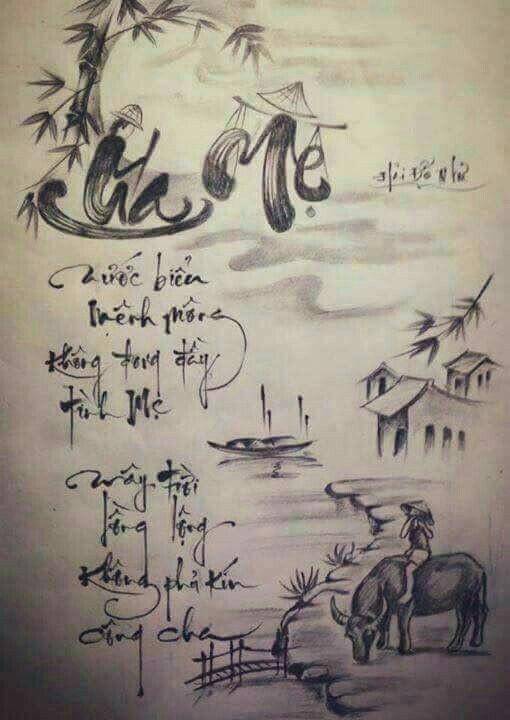 Cha Mẹ
Nước biển
mênh mông
không đong đầy
tình Mẹ
Mây trời
lồng lộng
không phủ kín
công cha